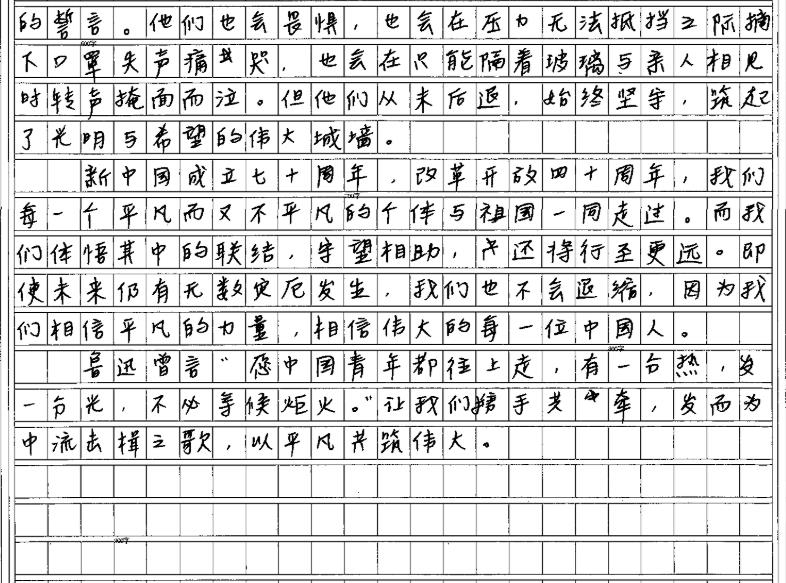 的誓言。他们也会畏惧，也会在压力无法抵挡之际摘
下口罩失声痛哭，也会在只能隔着玻璃与亲人相见
时转声掩面而泣。但他们从未后退，始终坚守，筑起
了光明与希望的伟大城墙。
新中国成立七十周年，改革开放四十周年，我们
每一个平凡而又不平凡的个体与祖国一同走过。而我
们体悟其中的联结，守望相助，才还将行至更远。即
使未来仍有无数灾厄发生，我们也不会退缩，因为我
们相信平凡的力量，相信伟大的每一位中国人。
鲁迅曾言“愿中国青年都往上走，有一分热，发
一分光，不必等候炬火。”让我们携手共牵，发而为
中流击楫之歌，以平凡共筑伟大。